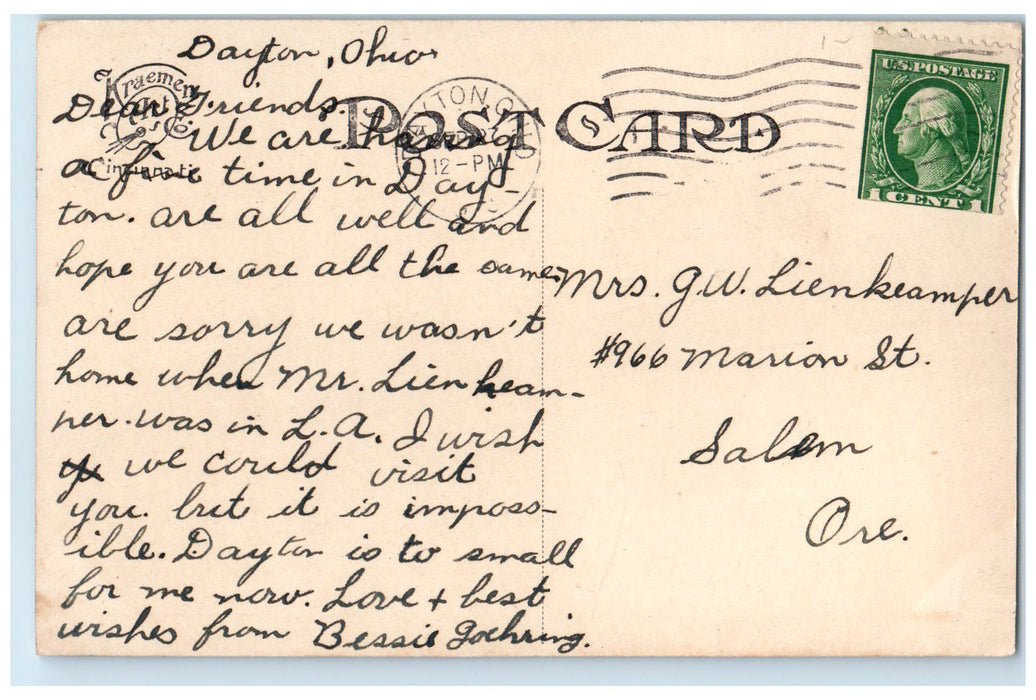 Dayton, Ohio
Kraemer
Cincinnati
POST CARD
DAYTON, O
12-PM
U.S. POSTAGE
1 CENT 1
Dear Friends.
We are having
a fine time in Day-
ton. are all well and
hope you are all the same.
are sorry we wasn't
home when Mr. Lienkeam-
per. was in L.A. I wish
we could visit
you. but it is imposs-
ible. Dayton is to small
for me now. Love + best
wishes from Bessie Goehring.
Mrs. G.W. Lienkeamper
#966 Marion St.
Salem
Ore.